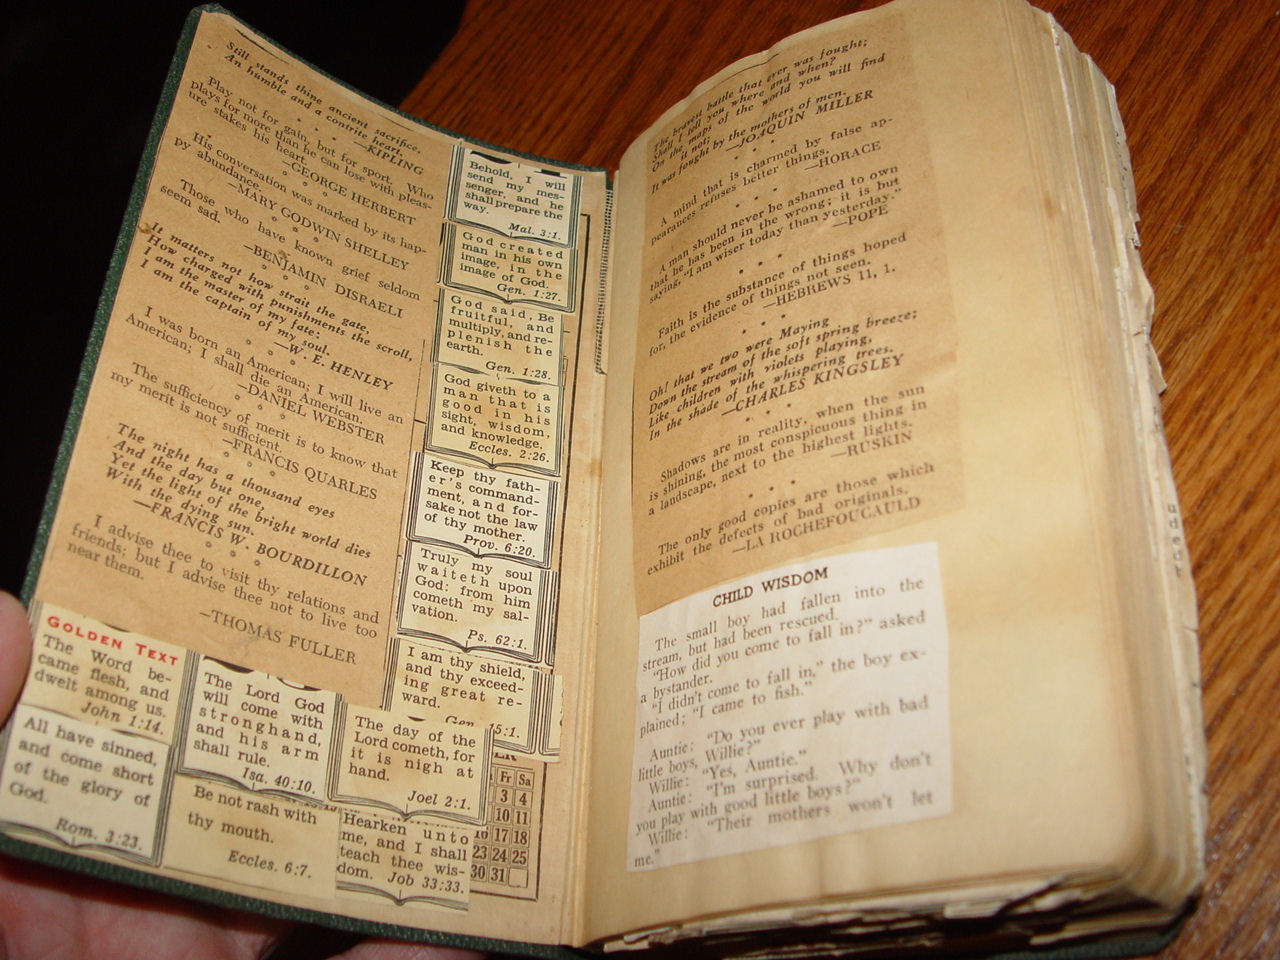 Still stands thine ancient sacrifice,
An humble and a contrite heart.
—KIPLING
Play not for gain, but for sport. Who
plays for more than he can lose with pleas-
ure stakes his heart.
—GEORGE HERBERT
His conversation was marked by its hap-
py abundance.
—MARY GODWIN SHELLEY
Those who have known grief seldom
seem sad.
—BENJAMIN DISRAELI
It matters not how strait the gate,
How charged with punishments the scroll,
I am the master of my fate:
I am the captain of my soul.
—W. E. HENLEY
I was born an American; I will live an
American; I shall die an American.
—DANIEL WEBSTER
The sufficiency of merit is to know that
my merit is not sufficient.
—FRANCIS QUARLES
The night has a thousand eyes
And the day but one,
Yet the light of the bright world dies
With the dying sun.
—FRANCIS W. BOURDILLON
I advise thee to visit thy relations and
friends; but I advise thee not to live too
near them.
—THOMAS FULLER
Behold, I will
send my mes-
senger, and he
shall prepare the
way.
Mal. 3:1.
God created
man in his own
image, in the
image of God.
Gen. 1:27.
God said, Be
fruitful, and
multiply, and re-
plenish the
earth.
Gen. 1:28.
God giveth to a
man that is
good in his
sight, wisdom,
and knowledge.
Eccles. 2:26.
Keep thy fath-
er's command-
ment, and for-
sake not the law
of thy mother.
Prov. 6:20.
Truly my soul
waiteth upon
God: from him
cometh my sal-
vation.
Ps. 62:1.
I am thy shield,
and thy exceed-
ing great re-
ward.
Gen. 15:1.
GOLDEN TEXT
The Word be-
came flesh, and
dwelt among us.
John 1:14.
The Lord God
will come with
strong hand,
and his arm
shall rule.
Isa. 40:10.
The day of the
Lord cometh, for
it is nigh at
hand.
Joel 2:1.
All have sinned,
and come short
of the glory of
God.
Rom. 3:23.
Be not rash with
thy mouth.
Eccles. 6:7.
Hearken unto
me, and I shall
teach thee wis-
dom. Job 33:33.
Fr Sa
3 4
10 11
16 17 18
23 24 25
30 31
The bravest battle that ever was fought;
Shall I tell you where and when?
On the maps of the world you will find
it not;
It was fought by the mothers of men.
—JOAQUIN MILLER
A mind that is charmed by false ap-
pearances refuses better things.
—HORACE
A man should never be ashamed to own
that he has been in the wrong; it is but
saying, "I am wiser today than yesterday."
—POPE
Faith is the substance of things hoped
for, the evidence of things not seen.
—HEBREWS 11, 1.
Oh! that we two were Maying
Down the stream of the soft spring breeze;
Like children with violets playing,
In the shade of the whispering trees.
—CHARLES KINGSLEY
Shadows are in reality, when the sun
is shining, the most conspicuous thing in
a landscape, next to the highest lights.
—RUSKIN
The only good copies are those which
exhibit the defects of bad originals.
—LA ROCHEFOUCAULD
CHILD WISDOM
The small boy had fallen into the
stream, but had been rescued.
"How did you come to fall in?" asked
a bystander.
"I didn't come to fall in," the boy ex-
plained; "I came to fish."
Auntie: "Do you ever play with bad
little boys, Willie?"
Willie: "Yes, Auntie."
Auntie: "I'm surprised. Why don't
you play with good little boys?"
Willie: "Their mothers won't let
me."